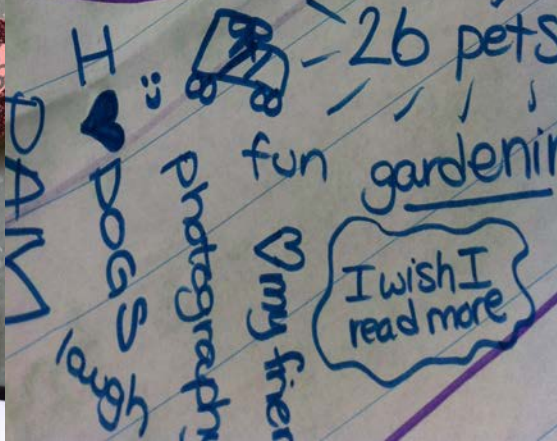 26 pets
fun
gardenin
I wish I
read more
H
♥ DOGS
laugh
photography
♡ my frien